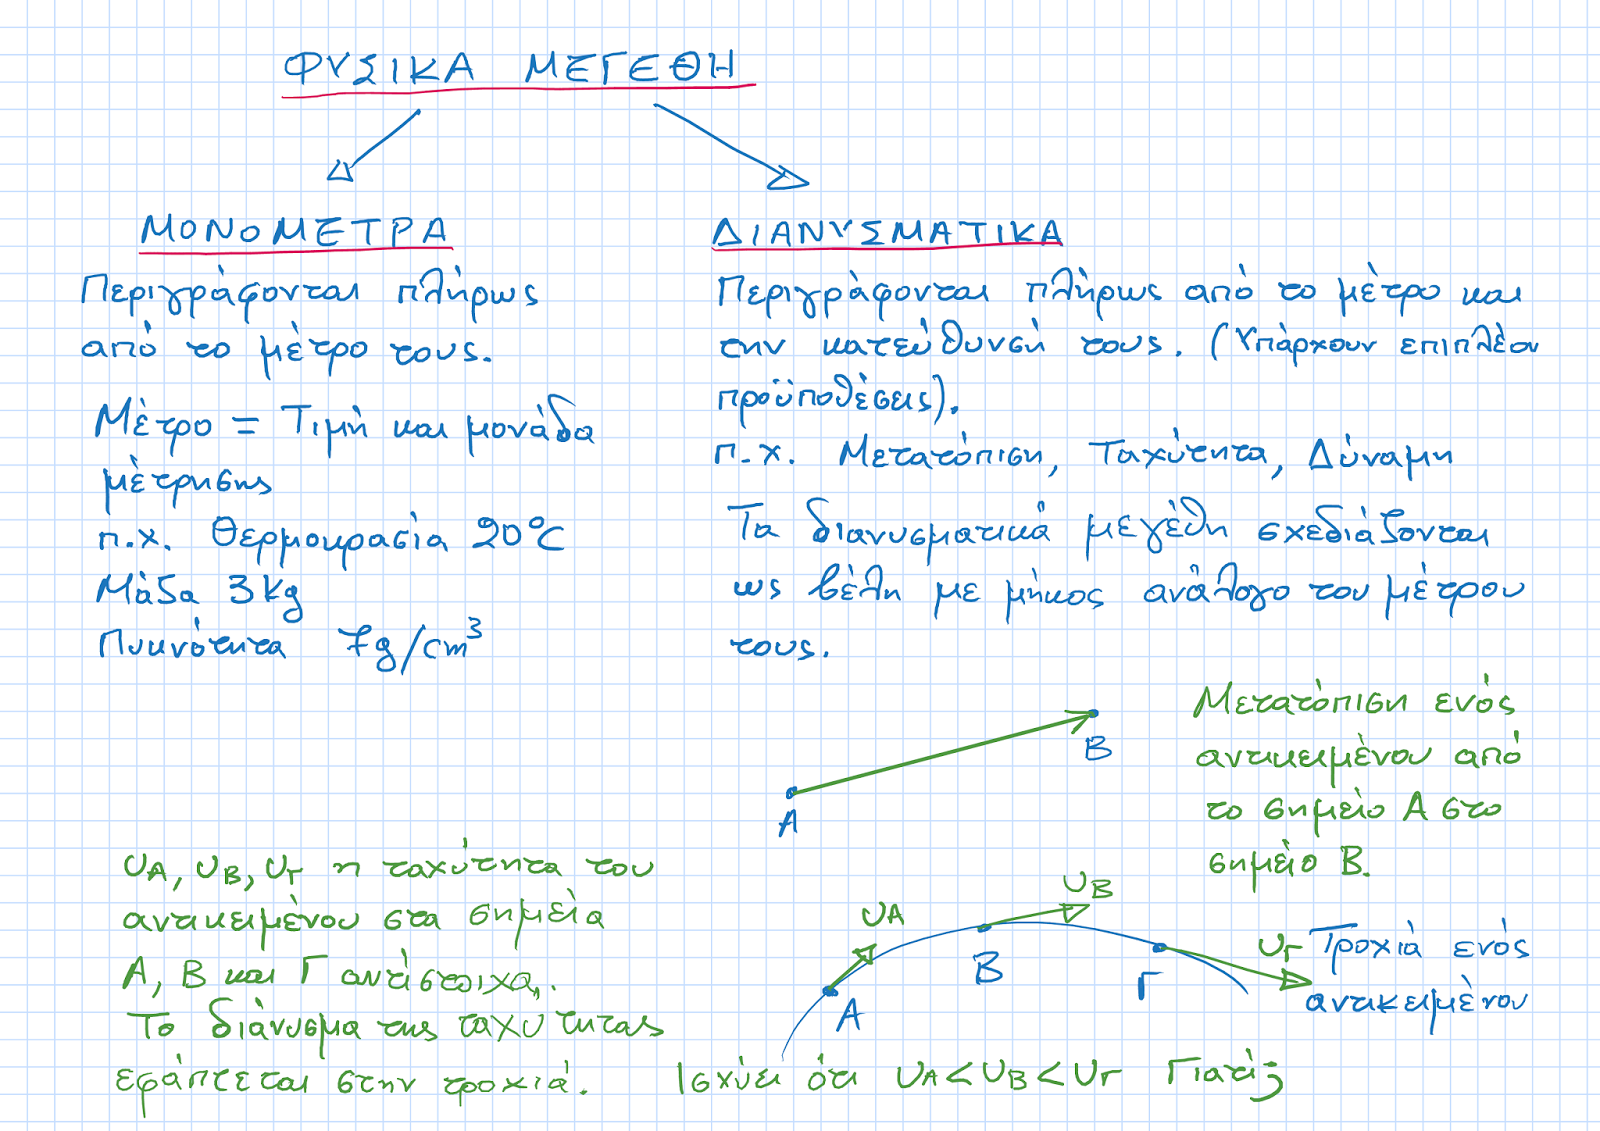 ΦΥΣΙΚΑ ΜΕΓΕΘΗ
ΜΟΝΟΜΕΤΡΑ
Περιγράφονται πλήρως
από το μέτρο τους.
Μέτρο = Τιμή και μονάδα
μέτρησης
π.χ. Θερμοκρασία 20°C
Μάζα 3kg
Πυκνότητα 7g/cm³
ΔΙΑΝΥΣΜΑΤΙΚΑ
Περιγράφονται πλήρως από το μέτρο και
την κατεύθυνσή τους. (Υπάρχουν επιπλέον
προϋποθέσεις).
π.χ. Μετατόπιση, Ταχύτητα, Δύναμη
Τα διανυσματικά μεγέθη σχεδιάζονται
ως βέλη με μήκος ανάλογο του μέτρου
τους.
A
B
Μετατόπιση ενός
αντικειμένου από
το σημείο Α στο
σημείο Β.
υA, υB, υΓ η ταχύτητα του
αντικειμένου στα σημεία
Α, Β και Γ αντίστοιχα,.
Το διάνυσμα της ταχύτητας
εφάπτεται στην τροχιά.
υA
υB
υΓ
A
B
Γ
Τροχιά ενός
αντικειμένου
Ισχύει ότι υA<υB<υΓ Γιατί;